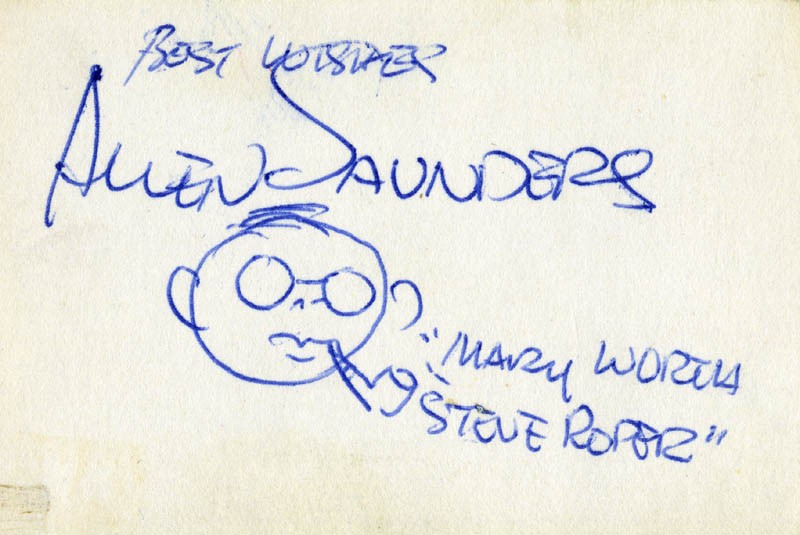 BEST WISHES
ALLEN SAUNDERS
"MARY WORTH
"STEVE ROPER"